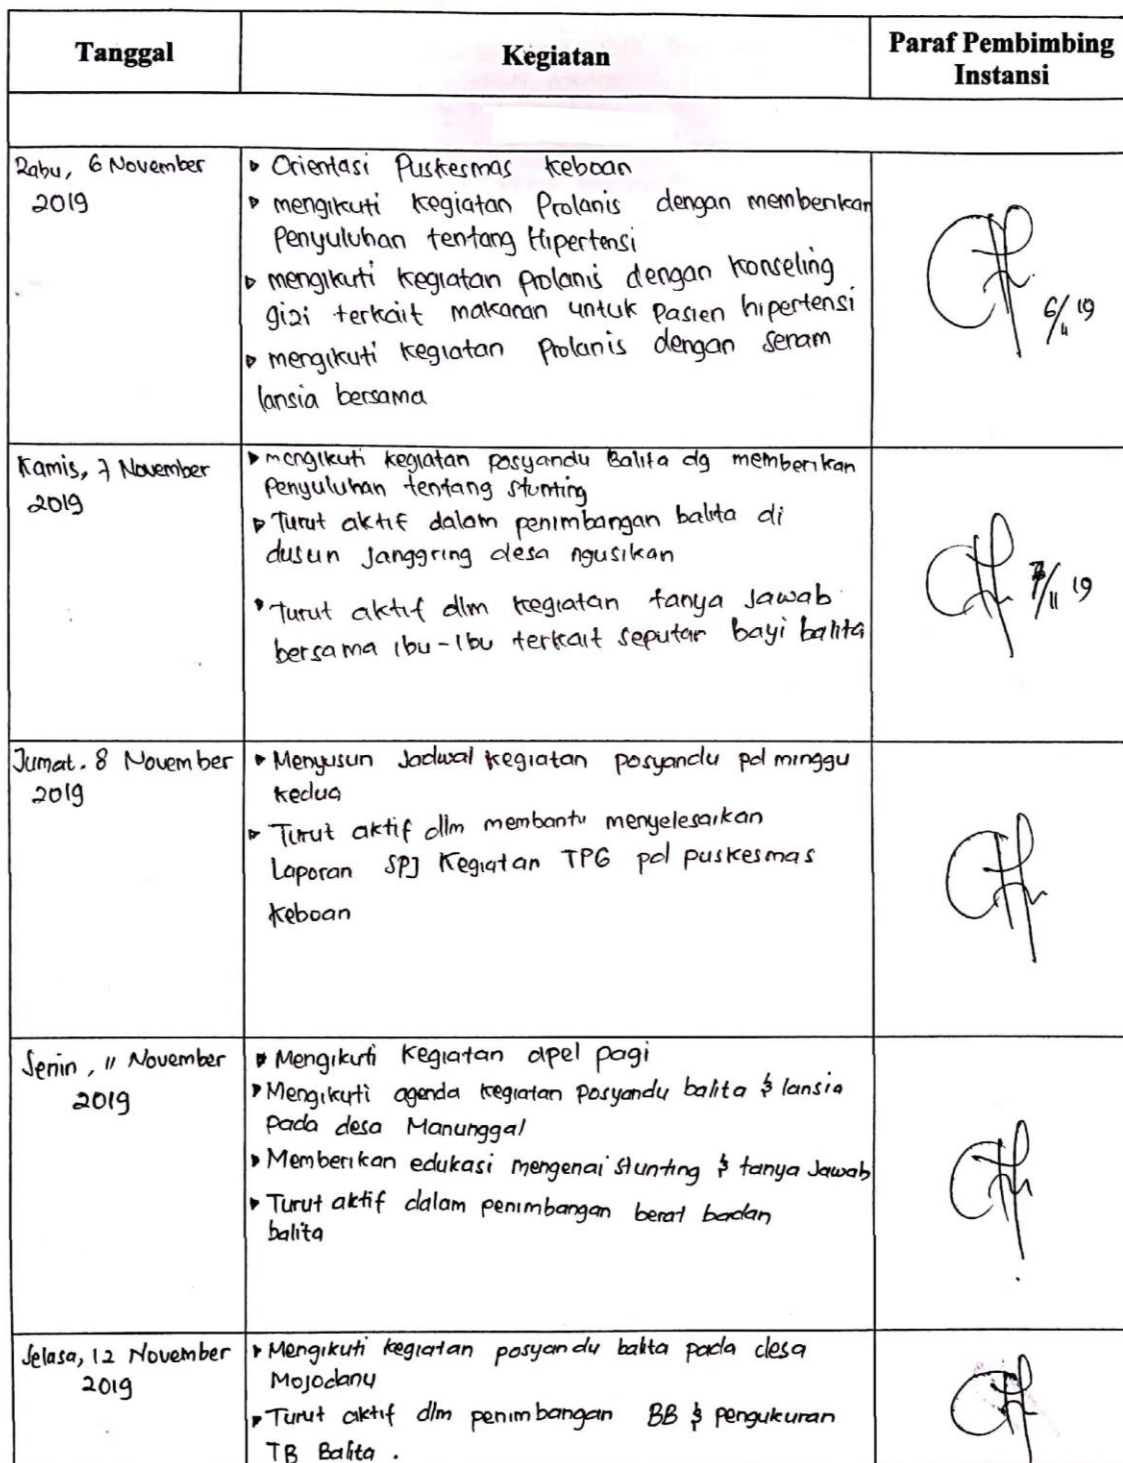 Tanggal
Kegiatan
Paraf Pembimbing
Instansi
Rabu, 6 November
2019
Orientasi Puskesmas keboan
mengikuti kegiatan Prolanis dengan memberikan
Penyuluhan tentang Hipertensi
mengikuti kegiatan Prolanis dengan konseling
gizi terkait makanan untuk pasien hipertensi
mengikuti kegiatan Prolanis dengan senam
lansia bersama
6/11 19
Kamis, 7 November
2019
mengikuti kegiatan posyandu Balita dg memberikan
Penyuluhan tentang stunting
Turut aktif dalam penimbangan balita di
dusun Janggring desa ngusikan
Turut aktif dlm kegiatan tanya Jawab
bersama ibu-ibu terkait seputar bayi balita
7/11 19
Jumat. 8 November
2019
Menyusun Jadwal kegiatan posyandu pd minggu
kedua
Turut aktif dlm membantu menyelesaikan
Laporan SPJ Kegiatan TPG pd puskesmas
Keboan
Senin, 11 November
2019
Mengikuti kegiatan apel pagi
Mengikuti agenda kegiatan Posyandu balita & lansia
Pada desa Manunggal
Memberikan edukasi mengenai stunting & tanya Jawab
Turut aktif dalam penimbangan berat badan
balita
Selasa, 12 November
2019
Mengikuti kegiatan posyandu balita pada desa
Mojodanu
Turut aktif dlm penimbangan BB & pengukuran
TB Balita .